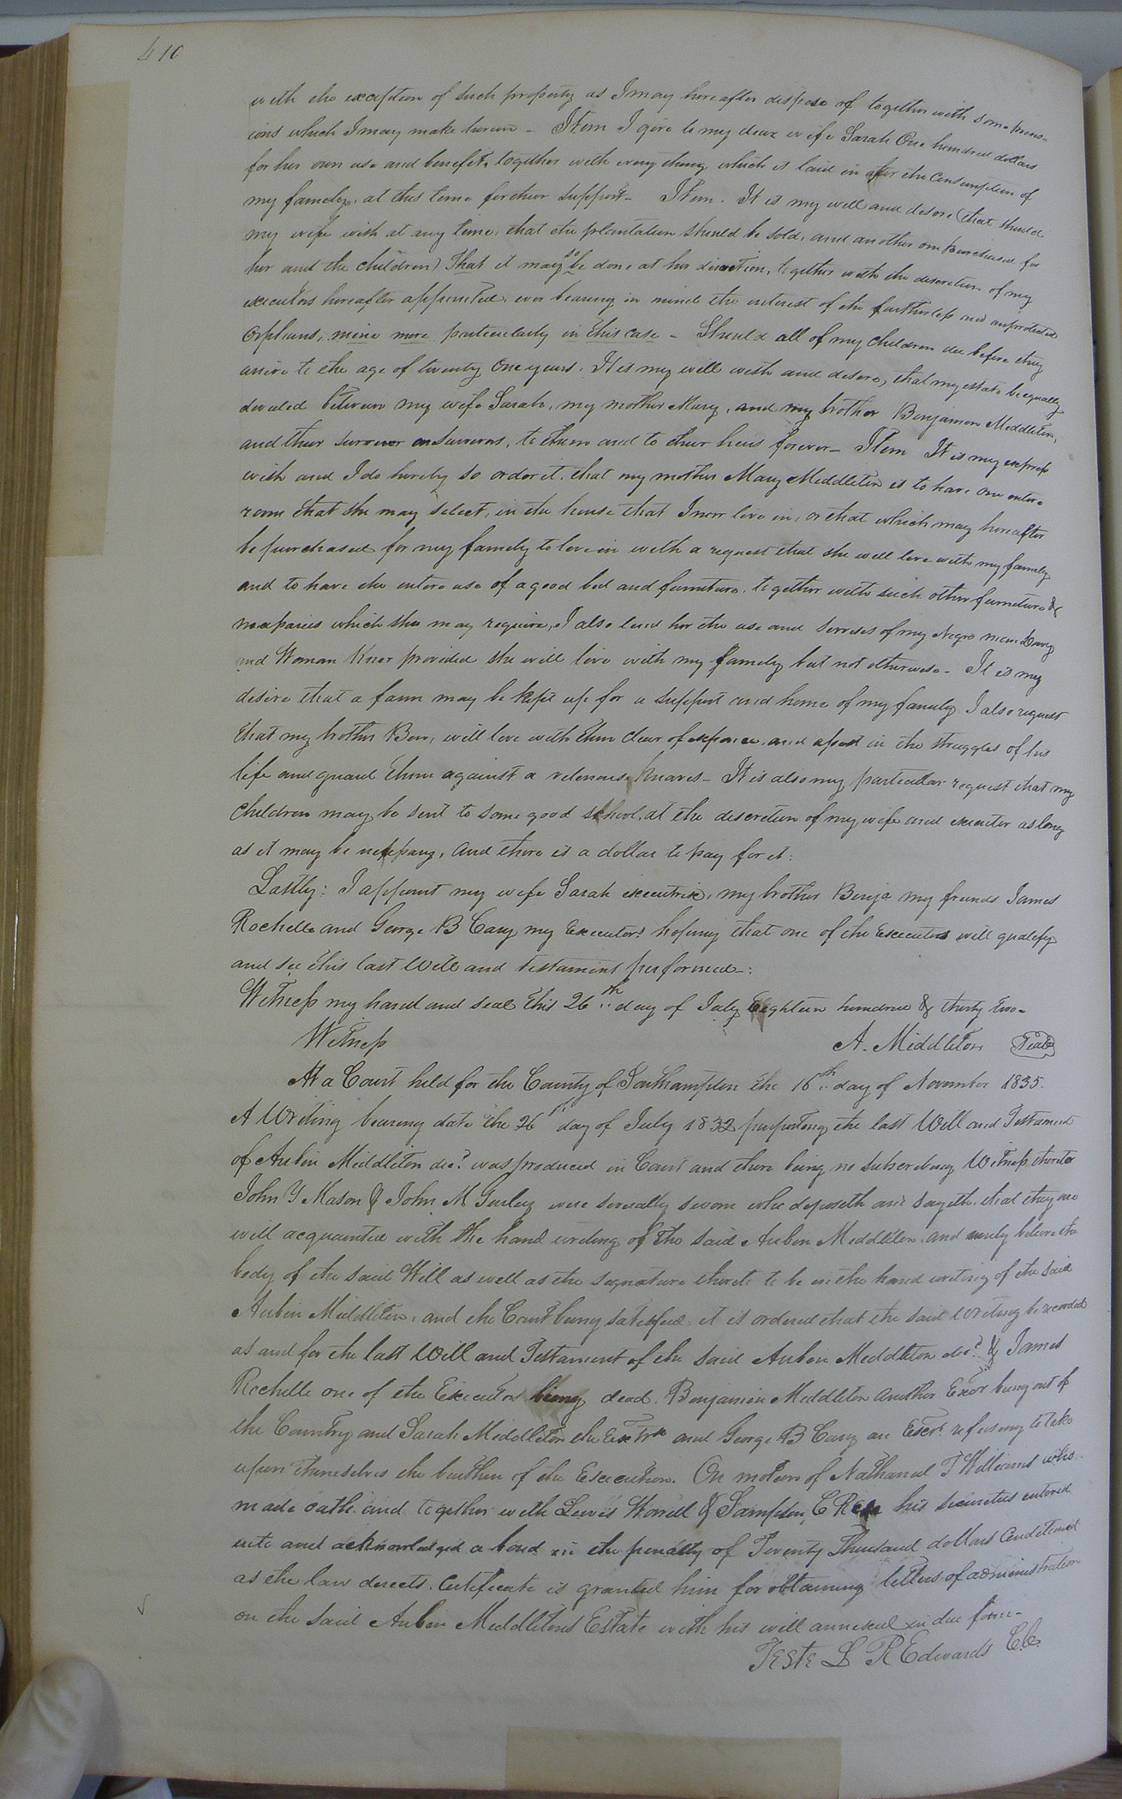 410
with the exception of such property as I may hereafter dispose of together with some provis-
ions which I may make herein - Item I give to my dear wife Sarah One hundred dollars
for her own use and benefit, together with every thing which is laid in for the Consumption of
my family, at this time for their support - Item. It is my will and desire (that should
my wife wish at any time, that the plantation should be sold, and another one purchased for
her and the children) That it may be done at her discretion, together with the discretion of my
executors hereafter appointed, ever bearing in mind the interest of the fatherless and unprotected
Orphans, mine more particularly in this case - Should all of my children die before they
arrive to the age of twenty One years. It is my will wish and desire, that my estate be equally
devided between my wife Sarah, my mother Mary, and my brother Benjamin Middleton,
and their survivor or survivors, to them and to their heirs forever - Item It is my express
wish and I do hereby so order it, that my mother Mary Middleton is to have one entire
room that she may select, in the house that I now live in, or that which may hereafter
be purchased for my family to live in with a request that she will live with my family
and to have the entire use of a good bed and furniture, together with such other furniture &
which she may require, I also lend her the use and servises of my Negro man Davy
and Woman provided she will live with my family but not otherwise - It is my
desire that a farm may be kept up for a support and home of my family. I also request
that my brother Ben, will live with them clear of expence, and assist in the struggles of his
life and guard them against a knaves - It is also my particular request that my
children may be sent to some good school, at the discretion of my wife and executor as long
as it may be necessary, and there is a dollar to pay for it:
Lastly: I appoint my wife Sarah executrix, my brother Benja my friends James
Rochelle and George B Cary my Executors hoping that one of the Executors will qualify
and see this last Will and testament performed -:
Witness my hand and seal this 26th day of July Eighteen hundred & thirty two -
Witness A. Middleton Seal
At a Court held for the County of Southampton the 16th day of November 1835.
A Writing bearing date the 26th day of July 1832 purporting the last Will and Testament
of Aubin Middleton decd was produced in Court and there being no subscribing Witness thereto
John Y Mason & John M Gurley were severally sworn who deposeth and sayeth, that they are
well acquainted with the hand writing of the said Aubin Middleton, and verily believe the
body of the said Will as well as the signature thereto to be in the hand writing of the said
Aubin Middleton, and the Court being satisfied it is ordered that the said writing be recorded
as and for the last Will and Testament of the said Aubin Middleton decd & James
Rochelle one of the Executors being dead. Benjamin Middleton another Exor being out of
the Country and Sarah Middleton the Extrx and George B Cary an Exor refusing to take
upon themselves the burthen of the Execution. On motion of Nathaniel T Williams who
made oath and together with Lewis Worrell & Sampson C his securities entered
into and acknowledged a bond in the penalty of Twenty Thousand dollars conditioned
as the law directs. Certificate is granted him for obtaining letters of administration
on the said Aubin Middletons Estate with his will annexed in due form -
Teste L R Edwards C.C.